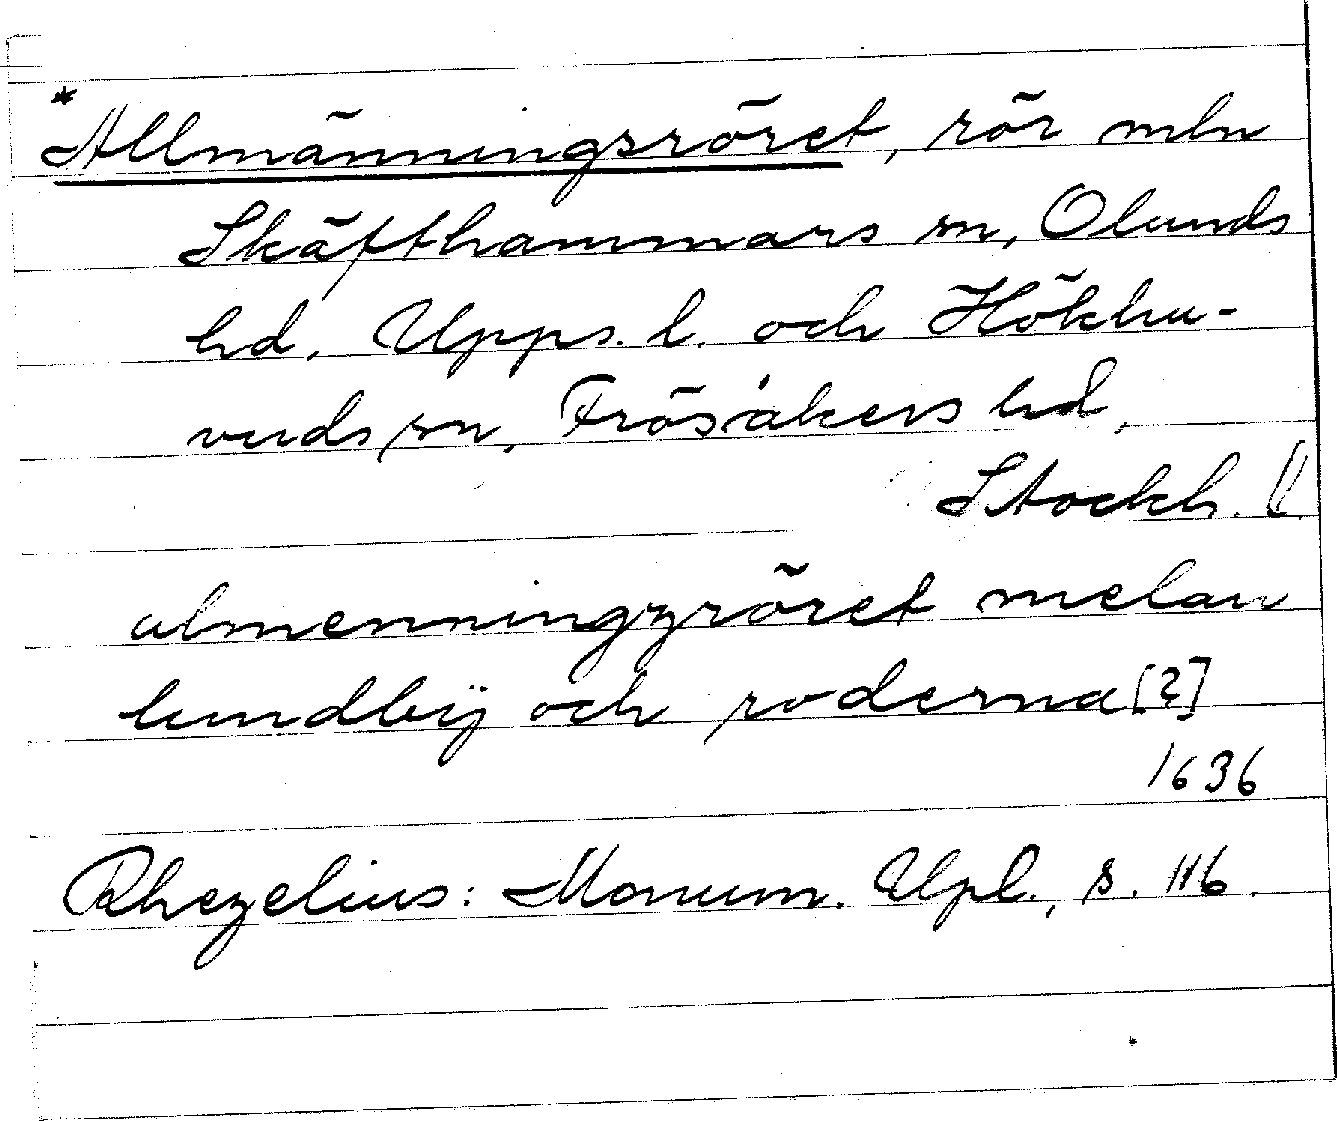 *Allmänningsröret, rör mln
Skäfthammars sn, Olands
hd, Upps. l. och Hökhu-
vuds sn, Frösåkers hd,
Stockh. l.
almenningzröret melan
lundbÿ och roderna [?]
1636
Rhezelius: Monum. Upl., s. 116.